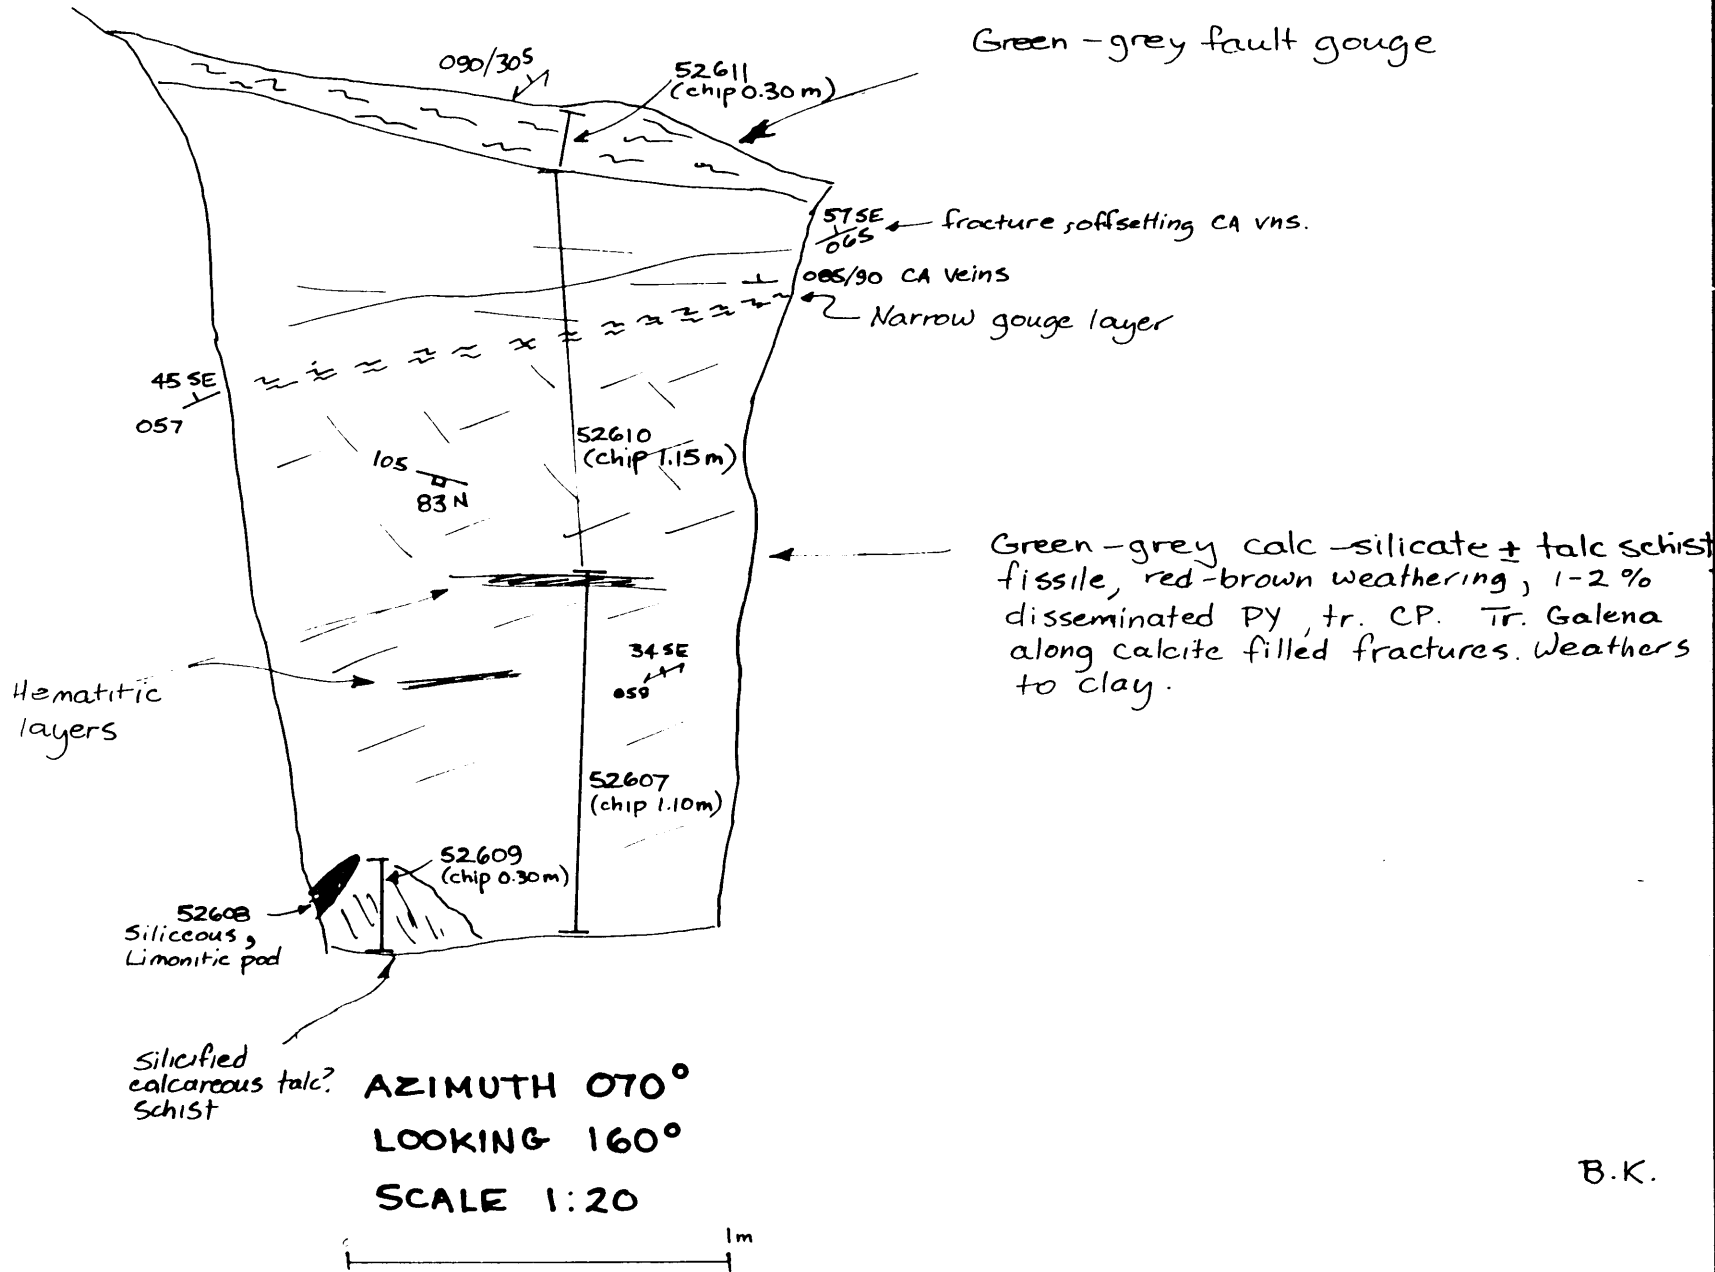 Green-grey fault gouge
090/30S
52611
(chip 0.30m)
57SE
065
fracture, offsetting CA vns.
085/90 CA veins
Narrow gouge layer
45 SE
057
52610
(chip 1.15m)
105
83 N
Green-grey calc-silicate ± talc schist
fissile, red-brown weathering, 1-2%
disseminated PY, tr. CP. Tr. Galena
along calcite filled fractures. Weathers
to clay.
34 SE
059
Hematitic
layers
52607
(chip 1.10m)
52609
(chip 0.30m)
52608
Siliceous,
Limonitic pod
Silicified
calcareous talc?
Schist
AZIMUTH 070°
LOOKING 160°
SCALE 1:20
1m
B.K.